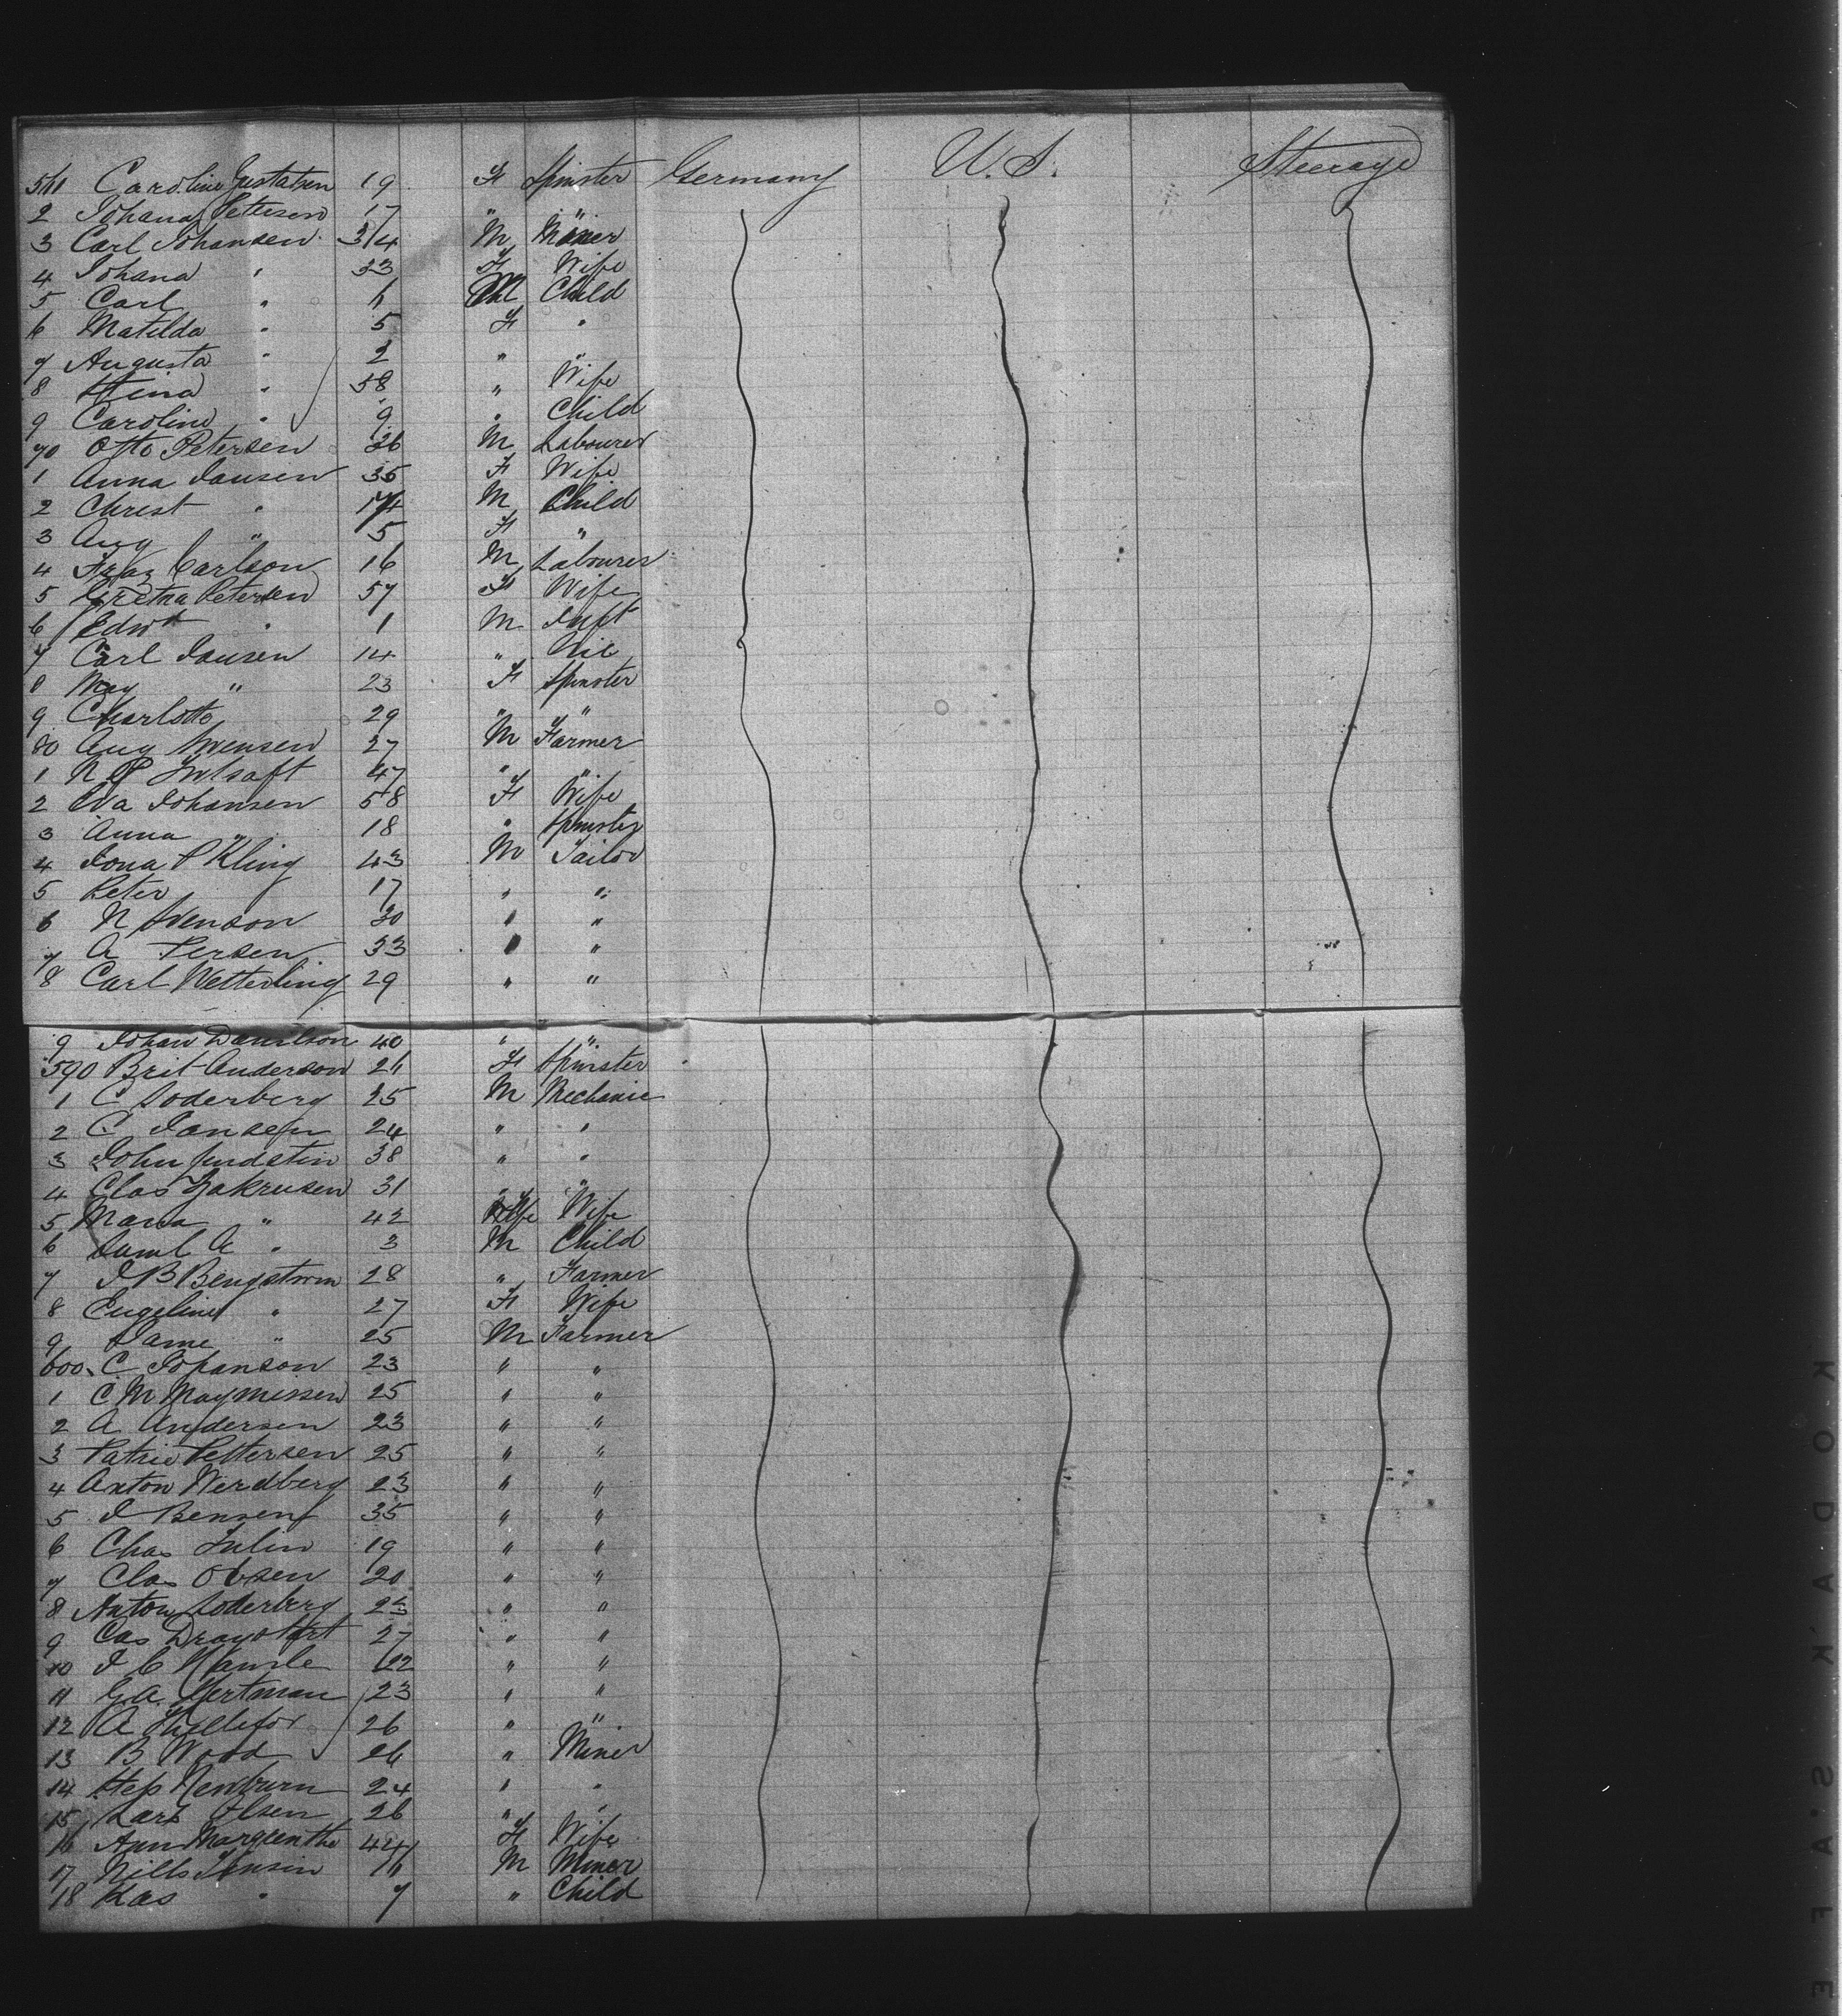 561 Caroline Gustafsen 19 F Spinster Germany U.S. Steerage
2 Johana Pettersen 17 " "
3 Carl Johansen 34 M Miner
4 Johana " 33 F Wife
5 Carl " 6 M Child
6 Matilda " 5 F "
7 Augusta " 2 " "
8 Stina " 58 " Wife
9 Caroline " 9 " Child
70 Otto Petersen 26 M Labourer
1 Anna Jansen 35 F Wife
2 Christ " M Child
3 Aug " 5 F "
4 Carlson 16 M Labourer
5 Gretha Petersen 57 F Wife
6 Edwd " 1 M Inft
7 Carl Jansen 14 " Nil
8 May " 23 F Spinster
9 Charlotte 29 " "
80 Aug Swensen 27 M Farmer
1 N P 47 " "
2 Eva Johansen 58 F Wife
3 Anna " 18 " Spinster
4 Jona P Kling 43 M Tailor
5 Peter 17 " "
6 N Svenson 30 " "
7 A Persen 33 " "
8 Carl Wetterling 29 " "
9 Johan Danilson 40 " "
590 Brit Anderson 26 F Spinster
1 C Soderberg 25 M Mechanic
2 C Jansen 24 " "
3 John 38 " "
4 Clas Zakrusen 31 " "
5 Maria " 42 Wife
6 Saml A " 3 M Child
7 J B Bengstrom 28 " Farmer
8 Engeline " 27 F Wife
9 " 25 M Farmer
600 C Johanson 23 " "
1 C M 25 " "
2 A Andersen 23 " "
3 Patric Pettersen 25 " "
4 Anton Werdberg 23 " "
5 J Bensen 35 " "
6 Chas Julin 19 " "
7 Clas Olsen 20 " "
8 Anton Soderberg 23 " "
9 Cas 27 " "
10 J C 22 " "
11 G.A. Hertman 23 " "
12 A 26 " "
13 B Wood 26 " Miner
14 Step Newburn 24 " "
15 Lars Olsen 26 " "
16 Ann 44 F Wife
17 Nills M Miner
18 Kas " 7 " Child
KODAK SAFE